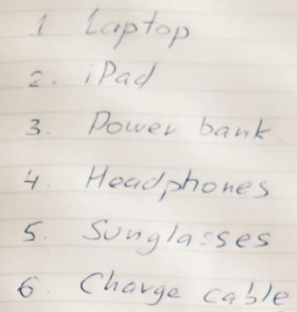 1 Laptop
2. iPad
3. Power bank
4. Headphones
5. Sunglasses
6. Charge cable